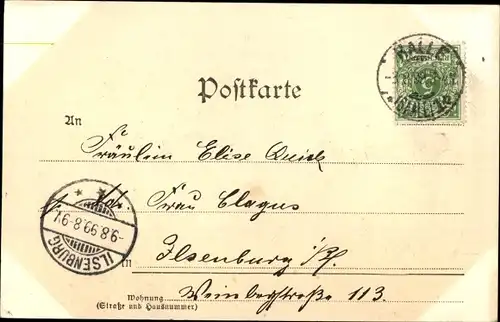 HALLE
Postkarte
An
Fräulein Elise Quick
Frau Clages
ILSENBURG
9.8.99.8-9V.
in Ilsenburg i/H.
Wohnung Weinbergstraße 113.
(Straße und Hausnummer)